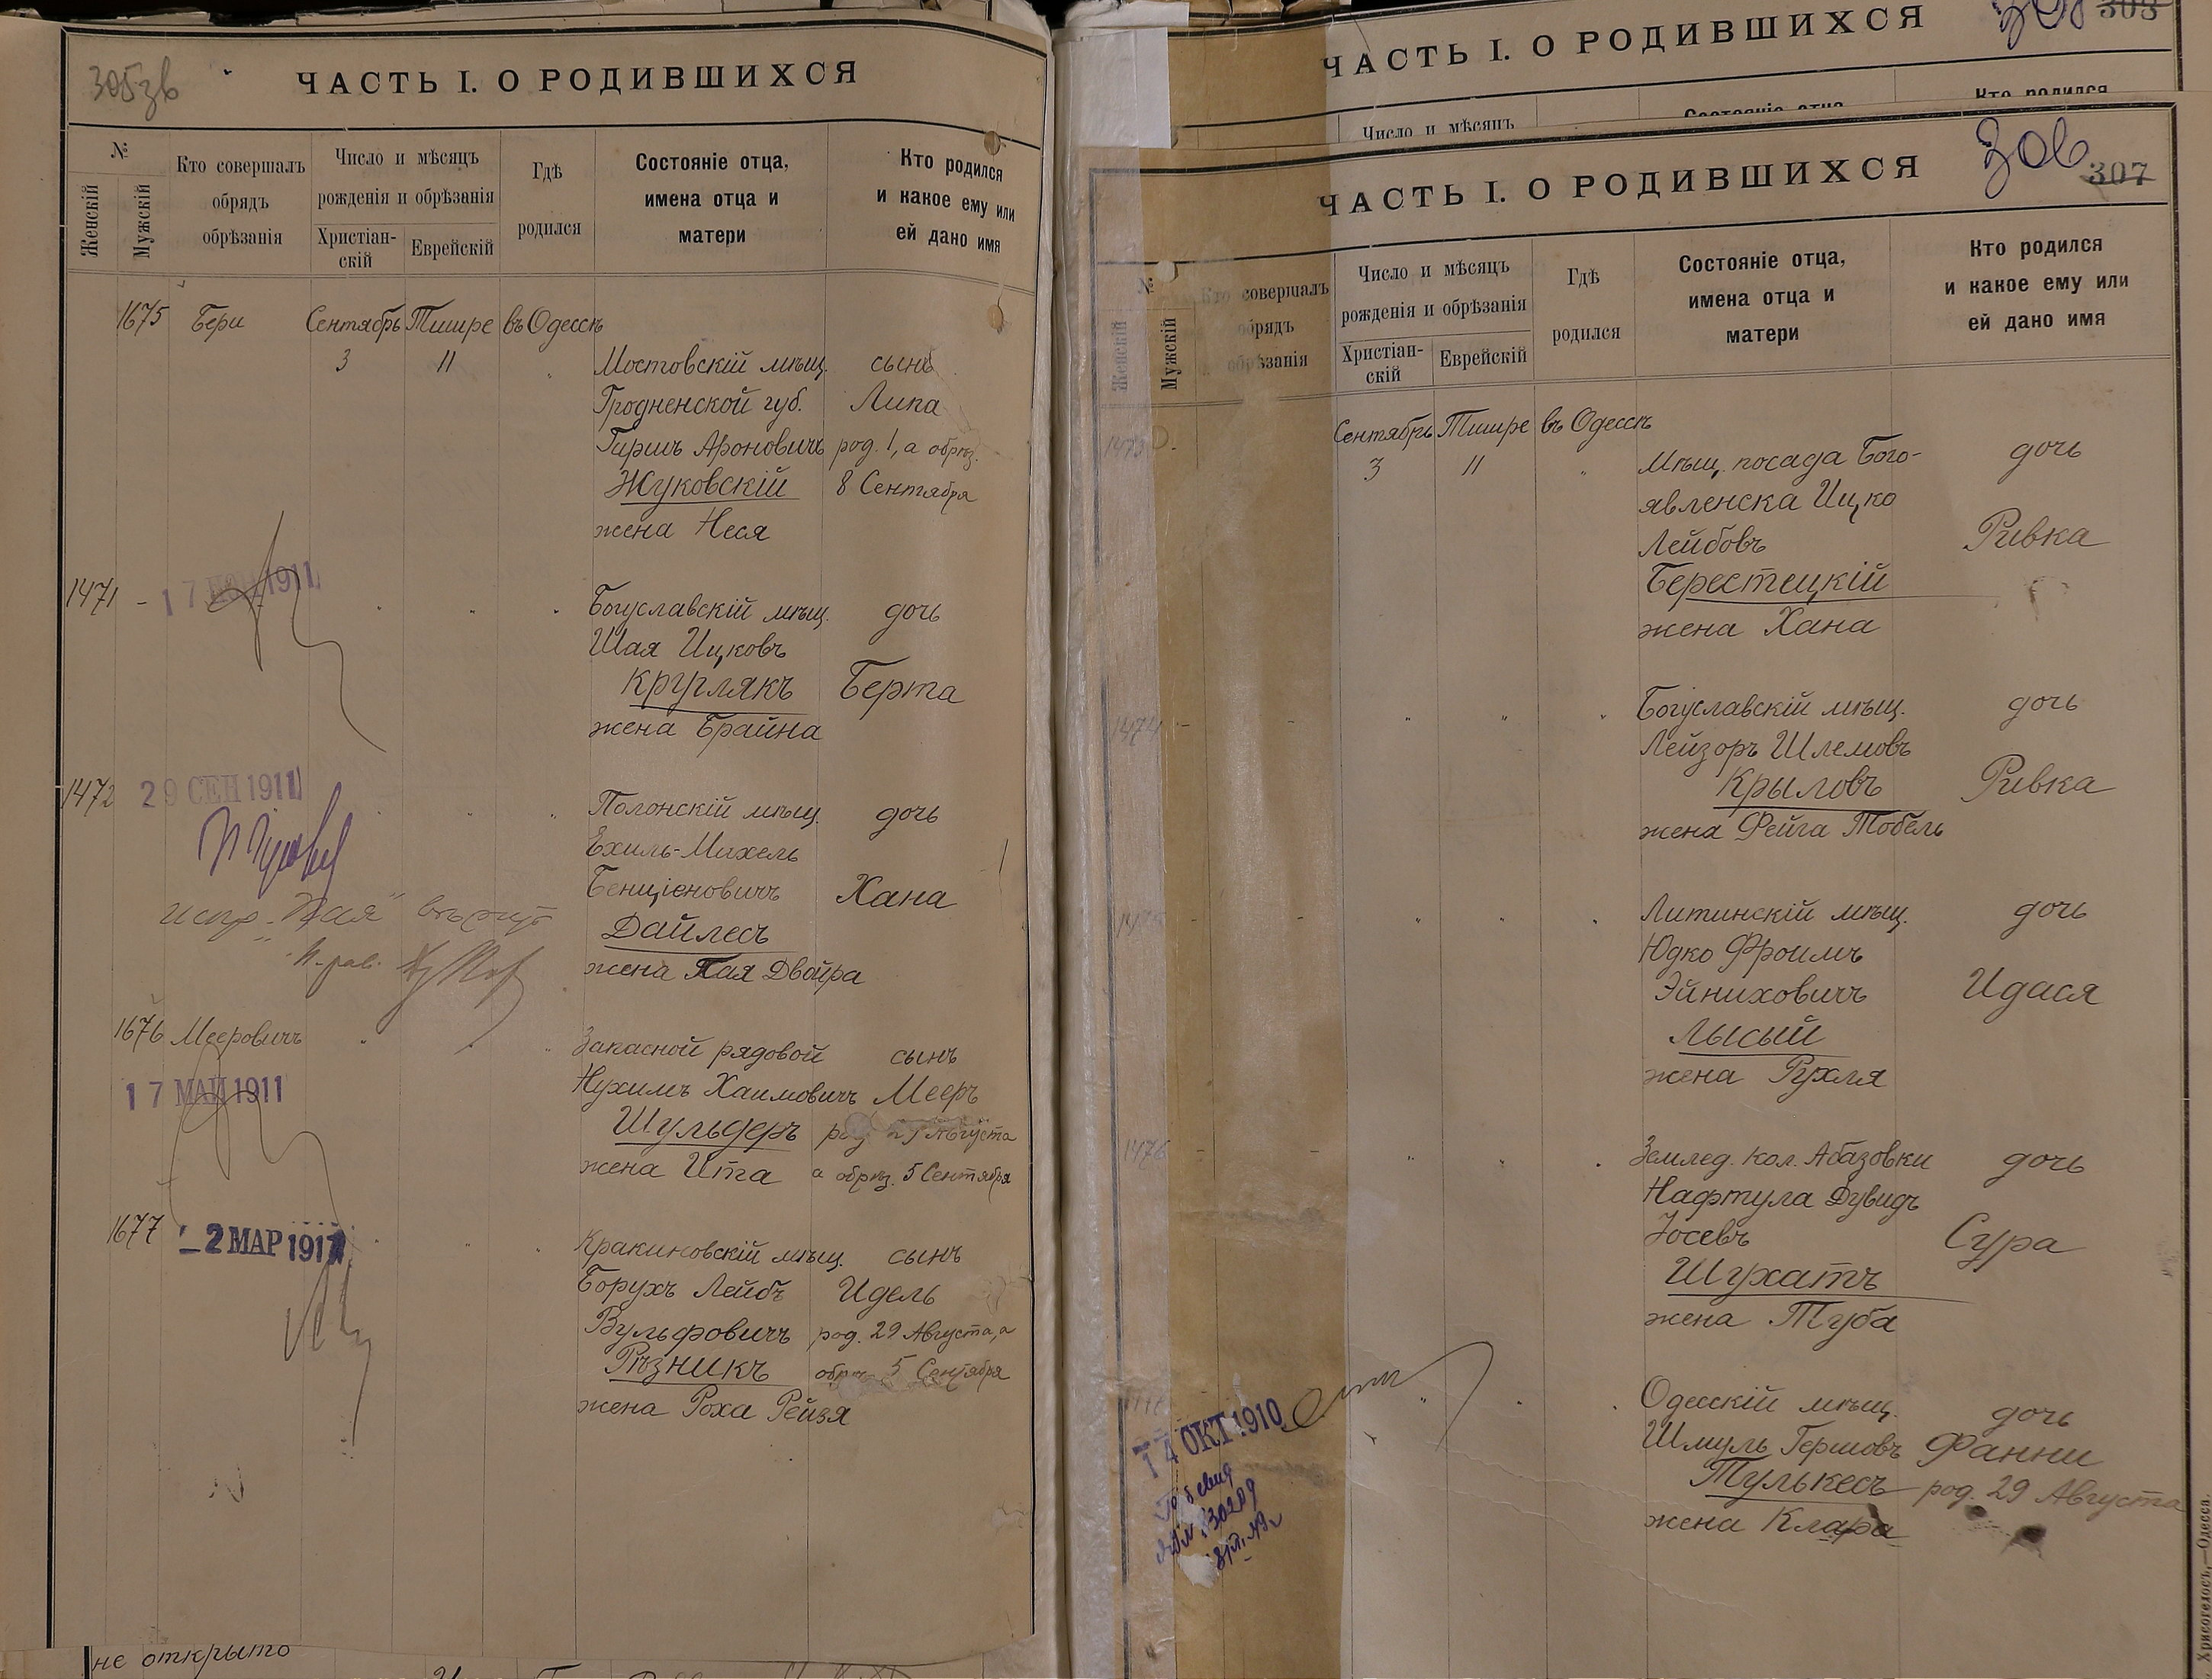 305зв
ЧАСТЬ I. О РОДИВШИХСЯ
№
Женскій
Мужскій
Кто совершалъ
обрядъ
обрѣзанія
Число и мѣсяцъ
рожденія и обрѣзанія
Христіан-
скій
Еврейскій
Гдѣ
родился
Состояніе отца,
имена отца и
матери
Кто родился
и какое ему или
ей дано имя
1675 Бери Сентябрь Тишре въ Одессѣ
3 11 Мостовскій мѣщ. сынъ
Гродненской губ. Липа
Гиршъ Ароновичъ род. 1, а обрѣз.
Жуковскій 8 Сентября
жена Неся
1471 - 1911 Богуславскій мѣщ. дочь
Шая Ицковъ
Круглякъ Берта
жена Брайна
1472 29 СЕН 1911 Полонскій мѣщ. дочь
Ехиль-Михель
Бенціеновичъ Хана
Дайлесъ
жена Хая Двойра
1676 Мееровичъ Запасной рядовой сынъ
17 МАЙ 1911 Нухимъ Хаимовичъ Мееръ
Шульдеръ род. Августа
жена Ита а обрѣз. 5 Сентября
1677 - 2 МАР 1917 Кракиновскій мѣщ. сынъ
Борухъ Лейбъ Идель
Вульфовичъ род. 29 Августа, а
Рѣзникъ обрѣз. 5 Сентября
жена Роха Рейзя
не открыто
303
ЧАСТЬ I. О РОДИВШИХСЯ
Число и мѣсяцъ
Состояніе отца
Кто родился
306
307
ЧАСТЬ I. О РОДИВШИХСЯ
№
Женскій
Мужскій
Кто совершалъ
обрядъ
обрѣзанія
Число и мѣсяцъ
рожденія и обрѣзанія
Христіан-
скій
Еврейскій
Гдѣ
родился
Состояніе отца,
имена отца и
матери
Кто родился
и какое ему или
ей дано имя
1473 Сентябрь Тишре въ Одессѣ
3 11 Мѣщ. посада Бого- дочь
явленска Ицко
Лейбовъ Ривка
Берестецкій
жена Хана
1474 - - Богуславскій мѣщ. дочь
Лейзоръ Шлемовъ
Крыловъ Ривка
жена Фейга Тобель
Литинскій мѣщ. дочь
Юдко Фроимъ
Эйниховичъ Идася
Лысый
жена Рухля
1476 - - Землед. кол. Абазовки дочь
Нафтула Дувидъ
Іосевъ Сура
Шухатъ
жена Туба
14 ОКТ 1910 Одесскій мѣщ. дочь
Шмуль Гершовъ Фанни
Тулькесъ род. 29 Августа
жена Клара
30209
Хрисогелосъ,—Одесса.